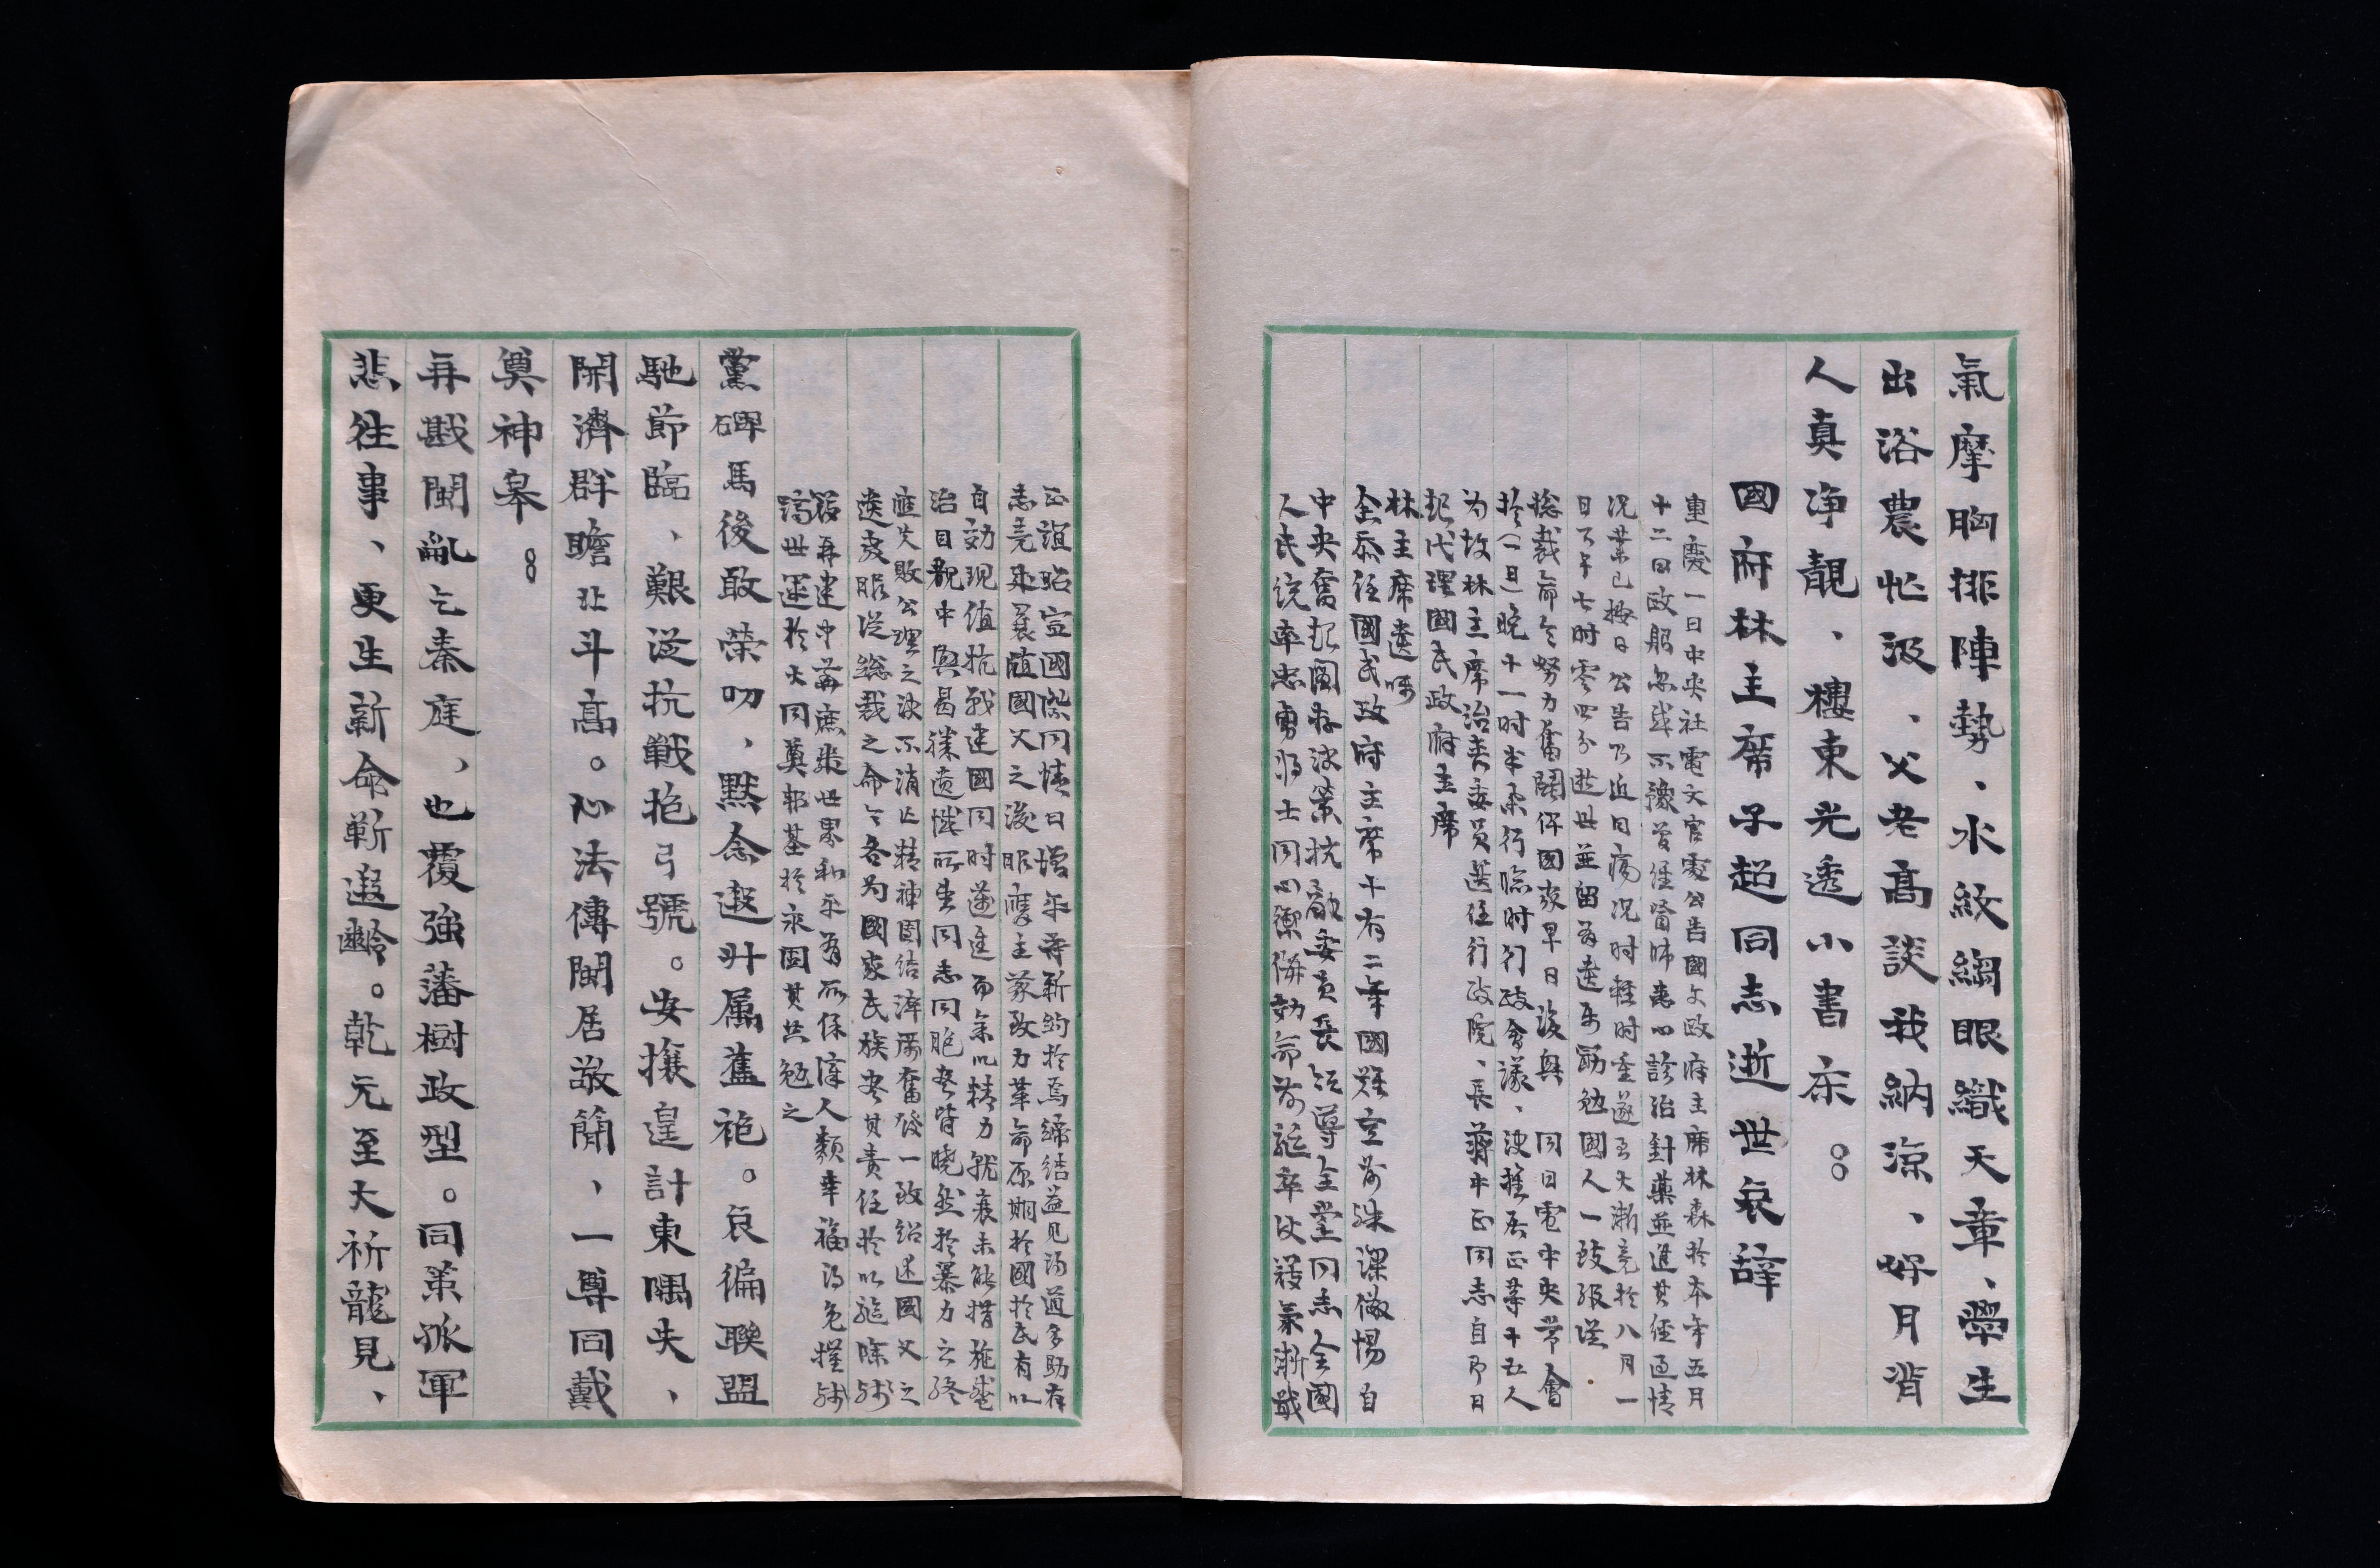 氣摩胸排陣勢、水紋綢眼織天章、學生
出浴農忙汲、父老高談我納涼、好月背
人真淨靚、樓東光透小書床。
國府林主席子超同志逝世哀辭
重慶一日中央社電文官處公告國民政府主席林森於本年五月
十二日政躬忽感不豫曾經醫師悉心診治對藥並進其經過情
況業已按日公告乃近日病況時輕時重遂至大漸竟於八月一
日下午七時零四分逝世並留有遺囑勗勉國人一致服從
總裁命令努力奮鬭俾國家早日復興 同日電中央常會
於(一日)晚十一時半舉行臨時行政會議、決推居正等十五人
為故林主席治喪委員選任行政院、長蔣中正同志自即日
起代理國民政府主席
林主席遺囑
余忝任國民政府主席十有二年國難空前殊深儆惕自
中央奮起圖存決策抗敵委員長領導全黨同志全國
人民統率忠勇將士同心禦侮効命前驅卒使寇氛漸戢
正誼昭宣國際同情日增平等新約於焉締結益見得道多助有
志竟成森隨國父之後服膺主義致力革命原期於國於民有以
自効現值抗戰建國同時邁進而余以精力就衰未能措施盛
治目覩中興曷勝遺憾所生同志同胞咸皆曉然於暴力之終
應失敗公理之決不消亡精神團結淬厲奮發一致紹述國父之
遺教服從總裁之命令各為國家民族盡其責任於以驅除殘
寇再建中華庶幾世界和平有所保障人類幸福得免摧殘
躋世運於大同奠邦基於永固其共勉之
黨碑馬後敢榮叨、默念遐升屬舊袍。哀徧聯盟
馳節臨、艱從抗戰抱弓號。安攘遑計東隅失、
開濟群瞻北斗高。心法傳聞居敬簡、一尊同戴
奠神皋。
再戡閩亂乞秦庭、也覆強藩樹政型。同策孤軍
悲往事、更生新命靳遐齡。乾元至大祈龍見、